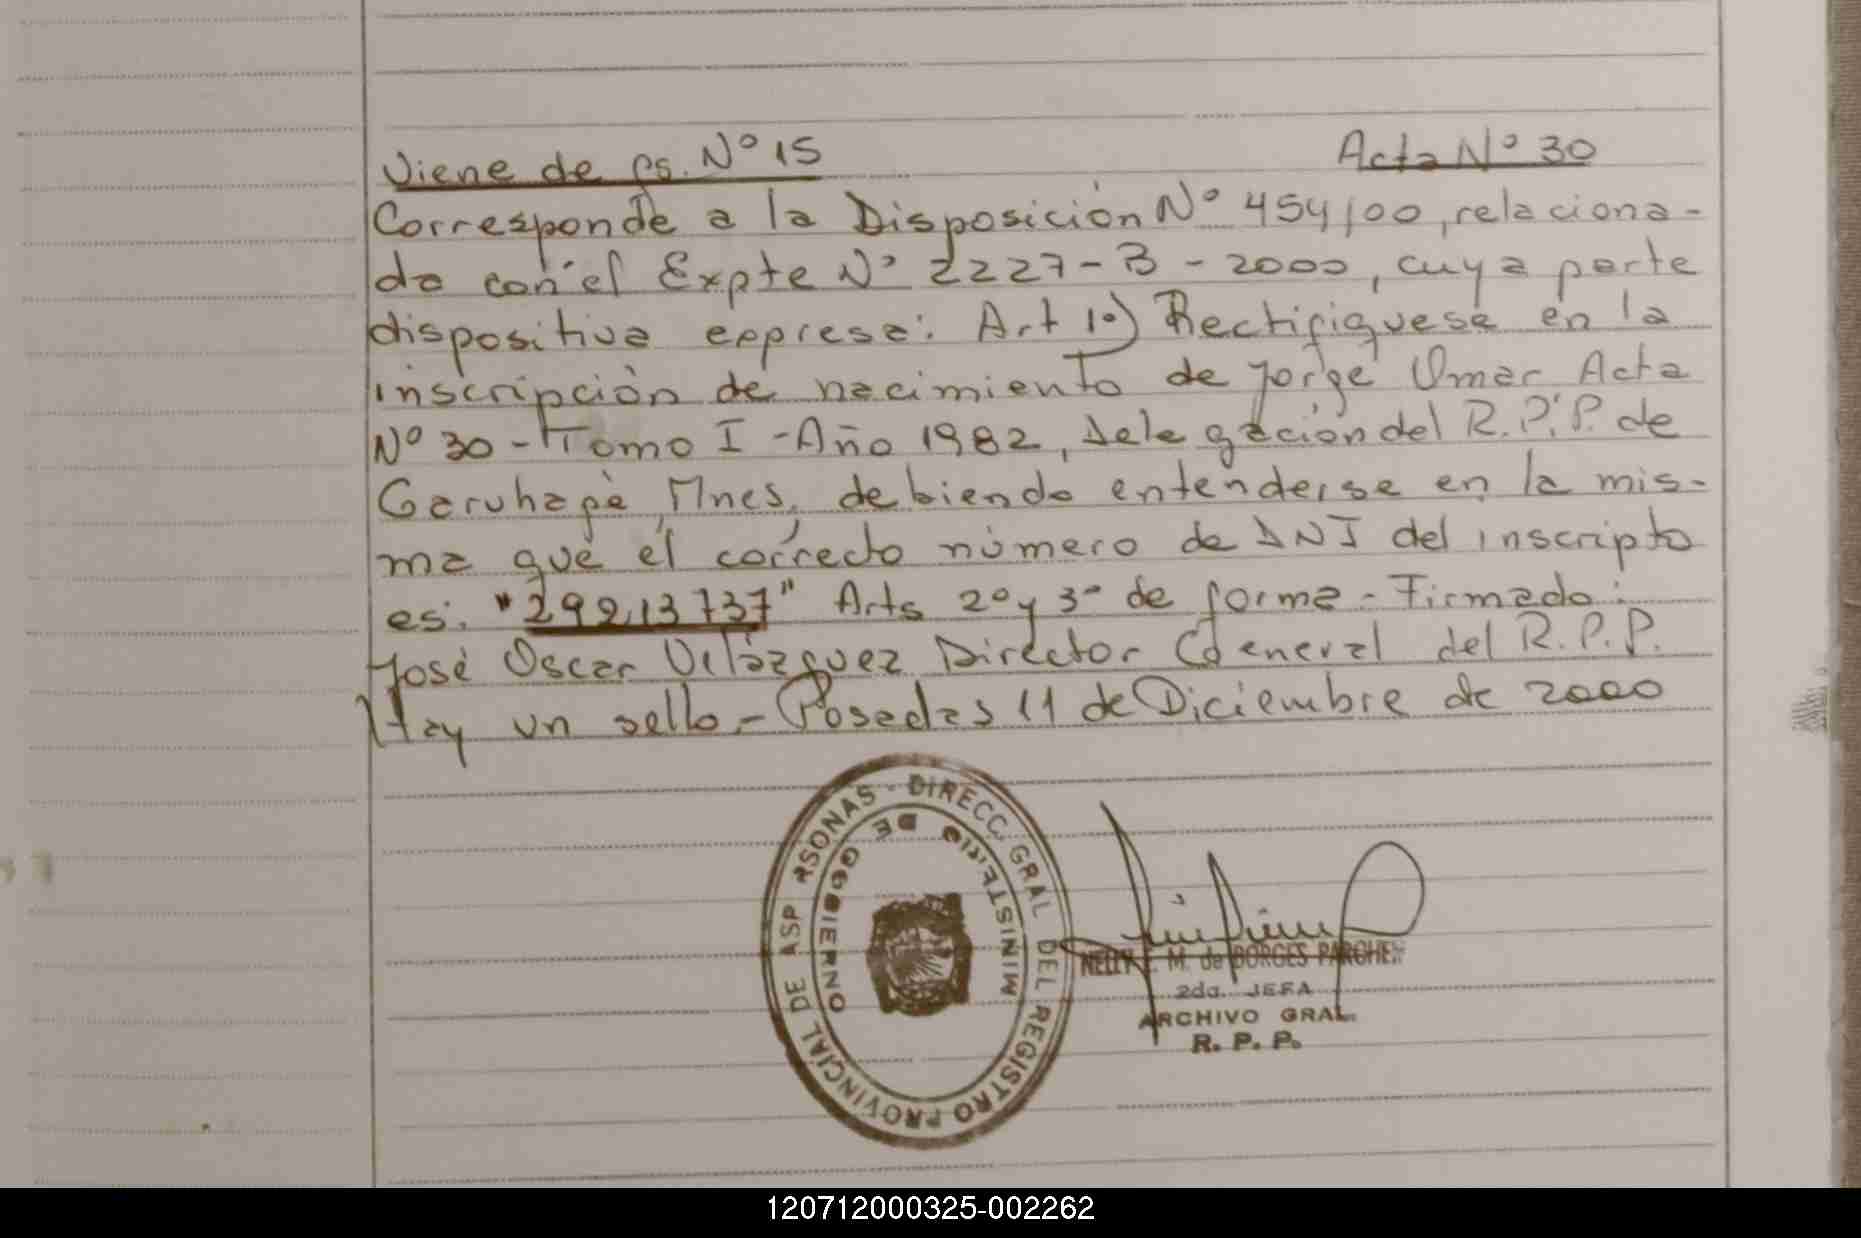 Viene de fs. Nº 15
Acta Nº 30
Corresponde a la Disposición Nº 454/00, relaciona-
da con el Expte Nº 2227-B-2000, cuya parte
dispositiva expresa: Art 1º) Rectifiquese en la
inscripción de nacimiento de Jorge Omar Acta
Nº 30 - Tomo I - Año 1982, Delegación del R.P.P. de
Garuhapé, Mnes, debiendo entenderse en la mis-
ma que el correcto número de DNI del inscripto
es: "29213737" Arts 2º y 3º de forma - Firmado:
José Oscar Velázquez Director General del R.P.P.
Hay un sello - Posadas 11 de Diciembre de 2000
DIRECC. GRAL DEL REGISTRO PROVINCIAL DE LAS PERSONAS
MINISTERIO DE GOBIERNO
NELLY M. de BORGES
2da. JEFA
ARCHIVO GRAL.
R. P. P.
120712000325-002262